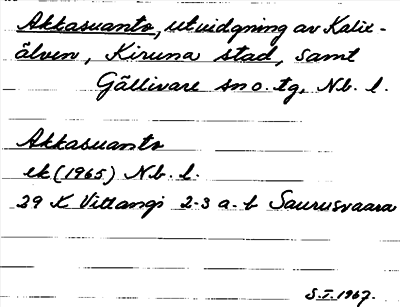 Akkasuanto, utvidgning av Kalix-
älven, Kiruna stad, samt
Gällivare sn o. tg, Nb. l.
Akkasuanto
ek (1965) Nb. l.
29 K Vittangi 2-3 a-b Saurusvaara
S.I. 1967.